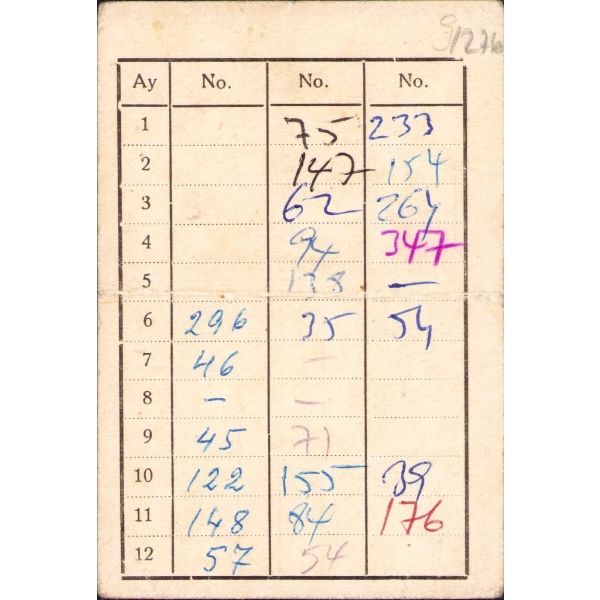 91276
Ay No. No. No.
1 75 233
2 147 154
3 62 264
4 94 347
5 138 —
6 296 35 54
7 46 —
8 — —
9 45 71
10 122 155 39
11 148 84 176
12 57 54